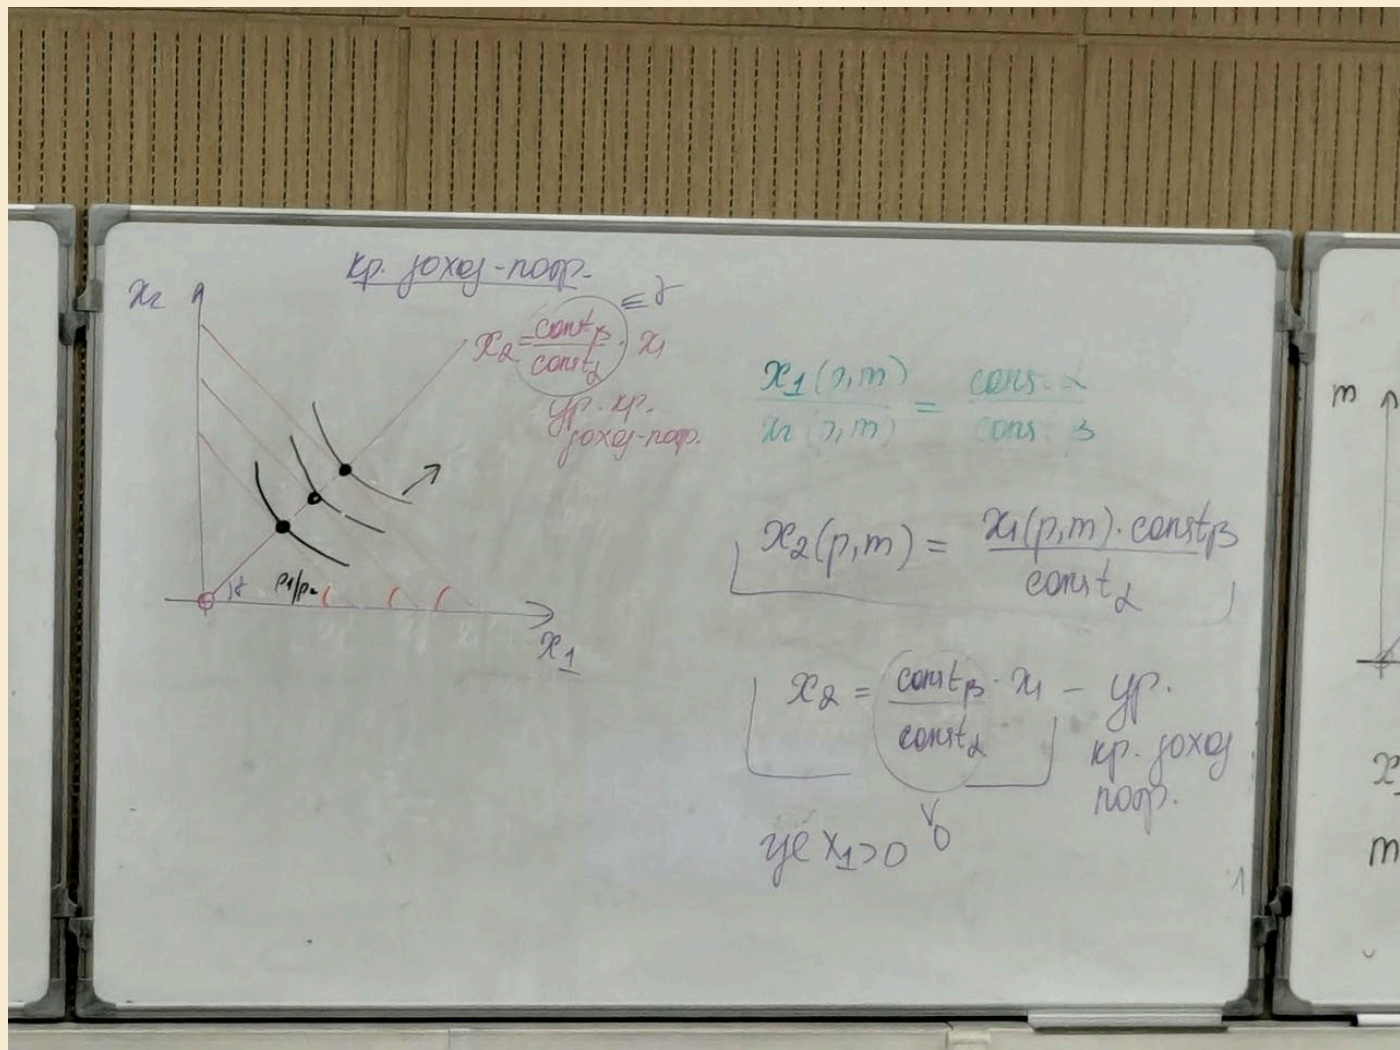 кр. доход-потр.
x₂
x₂ = constᵦ / const_α · x₁
≡ γ
ур. кр.
доход-потр.
γ
p₁/p₂
x₁
x₁(p,m) / x₂(p,m) = const α / const β
x₂(p,m) = x₁(p,m) · constᵦ / const_α
x₂ = constᵦ / const_α · x₁ – ур.
кр. доход
потр.
где x₁>0
v
0
m
x
m